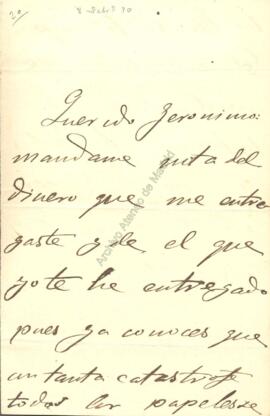 Querido Jeronimo:
mandame nota del
dinero que me entre
gaste y de el que
yo te he entregado
pues ya conoces que
con tanta catastrofe
todos los papeles se
Archivo Ateneo de Madrid